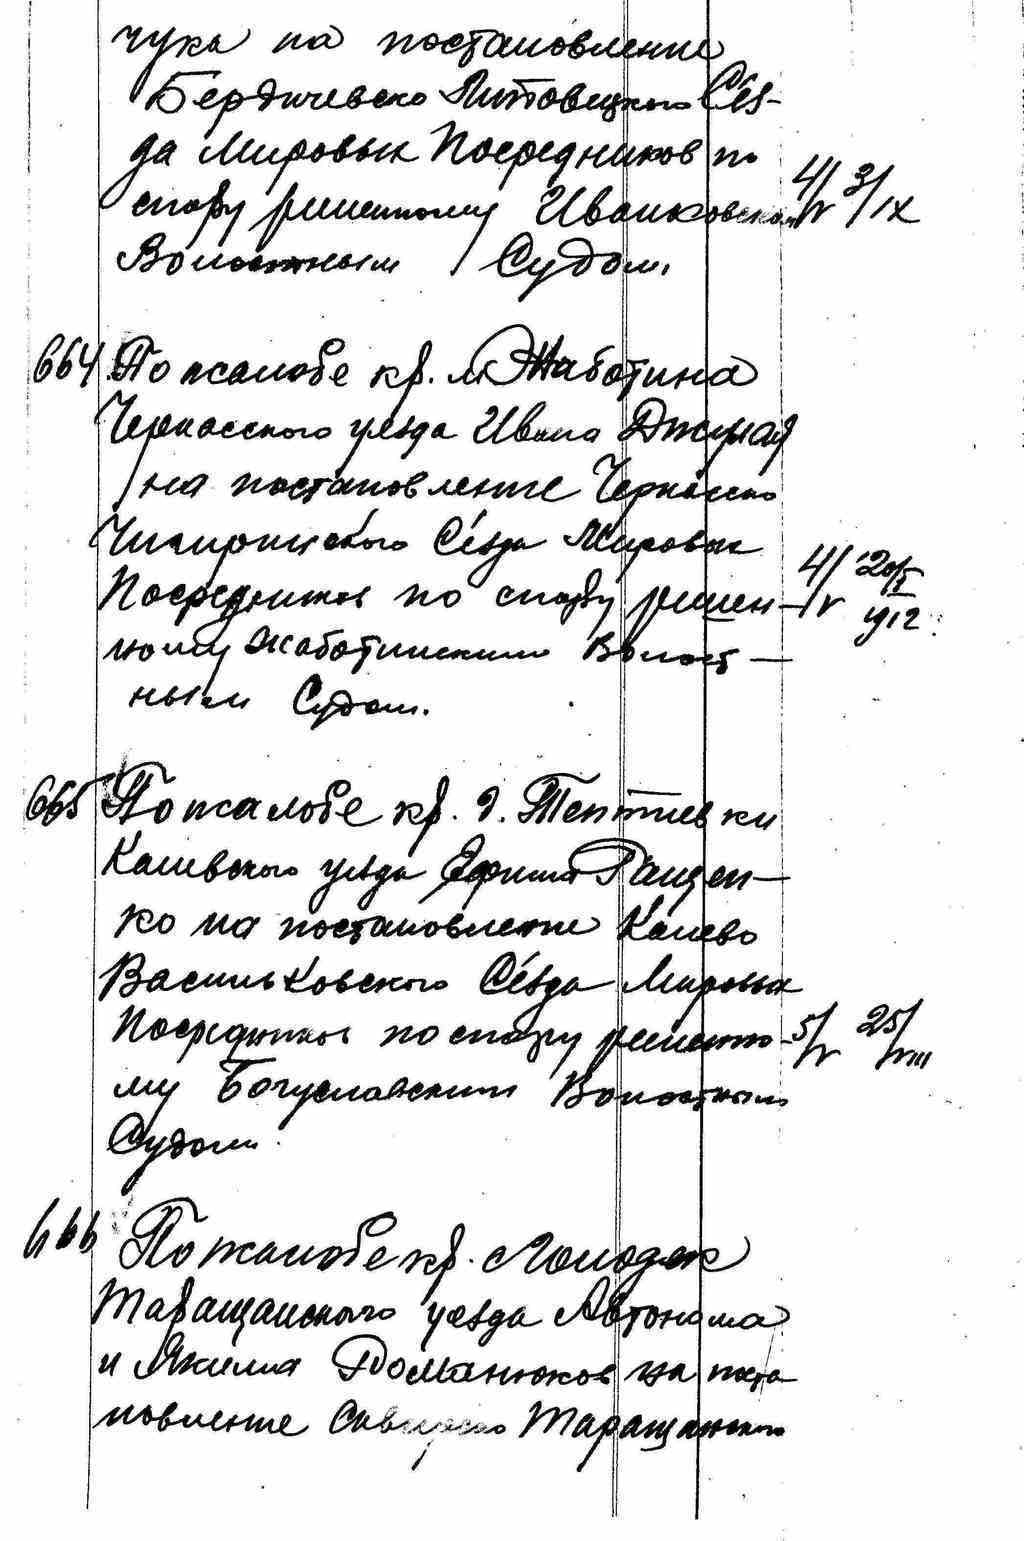 чука на постановление
Бердичевско Липовецкого Съез-
да Мировых Посредников по
спору решенному Иваньковским 4/IV 3/IX
Волостным Судом.
664 По жалобе кр. м. Жаботина
Черкасского уезда Ивана
на постановление Черкасско
Чигиринского Съезда Мировых
Посредников по спору решен- 4/IV 20/I 1912
ному Жаботинским Волост-
ным Судом.
665 По жалобе кр. д. Тептиевки
Каневского уезда Ефима Ращен-
ко на постановление Канево
Васильковского Съезда Мировых
Посредников по спору решенно- 5/IV 25/VIII
му Богуславским Волостным
Судом.
666 По жалобе кр.
Таращанского уезда Автонома
и Якима Романюков на поста
новление Сквирско Таращанского